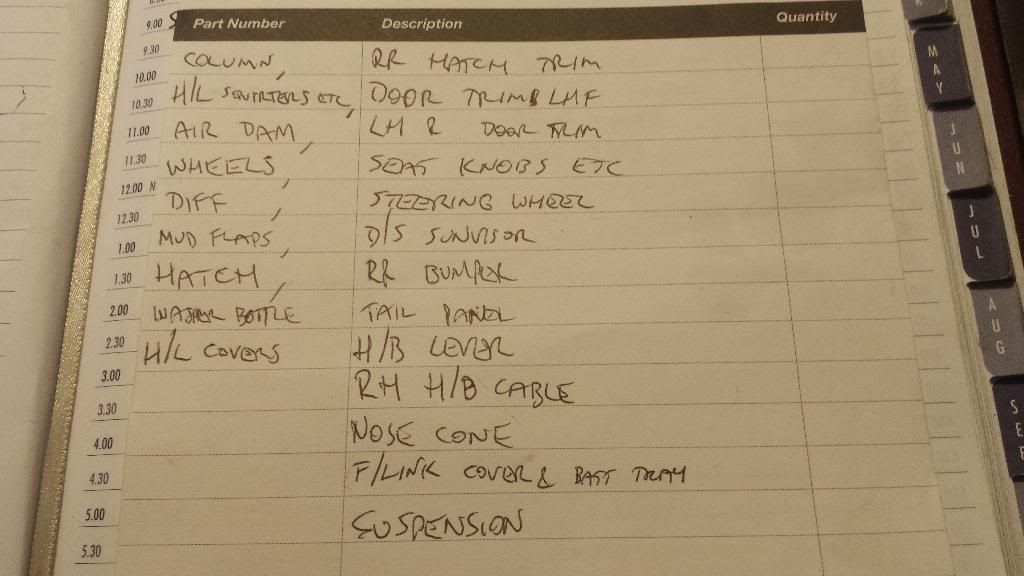 9.00 Part Number Description Quantity
9.30 COLUMN, RR HATCH TRIM
10.00 H/L SQUIRTERS ETC, DOOR TRIMS LHF
10.30 AIR DAM, LH R DOOR TRIM
11.00 WHEELS, SEAT KNOBS ETC
11.30 DIFF, STEERING WHEEL
12.00 N MUD FLAPS, D/S SUNVISOR
12.30 HATCH, RR BUMPER
1.00 WASHER BOTTLE TAIL PANEL
1.30 H/L COVERS H/B LEVER
2.00 RH H/B CABLE
2.30 NOSE CONE
3.00 F/LINK COVER & BATT TRAY
3.30 SUSPENSION
4.00
4.30
5.00
5.30
MAY
JUN
JUL
AUG
SEP